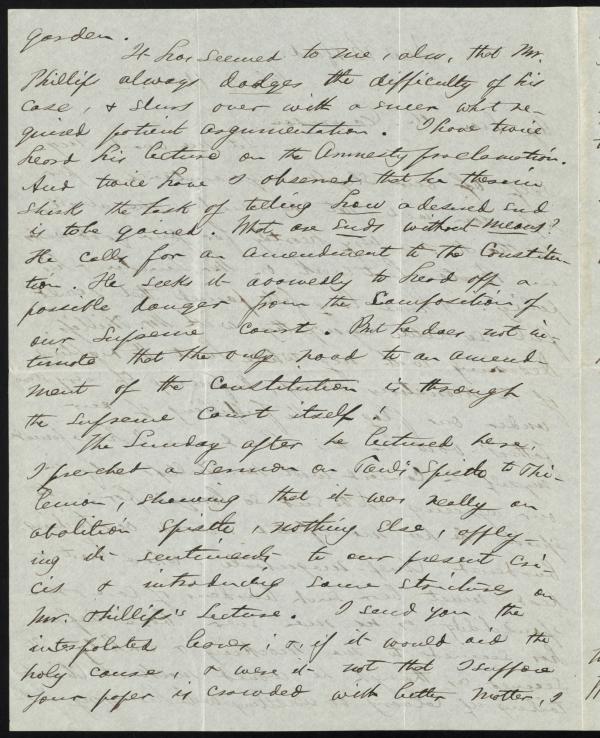 garden.
It has seemed to me, also, that Mr.
Phillips always dodges the difficulty of his
case, & slurs over with a sneer what re-
quired patient argumentation. I have twice
heard his lecture on the Amnesty proclamation.
And twice have I observed that he therein
shirk the task of telling how a desired end
is to be gained. What are Ends without means?
He calls for an amendment to the Constitu-
tion. He seeks it avowedly to head off a
possible danger from the Composition of
our Supreme Court. But he does not in-
timate that the only road to an amend-
ment of the Constitution is through
the Supreme Court itself!
The Sunday after he lectured here,
I preachet a Sermon on Paul's Epistle to Phi-
lemon, showing that it was really an
abolition Epistle, nothing else, apply-
ing its sentiments to our present cri-
cis & introducing some strictures on
Mr. Phillips's Lecture. I send you the
interpolated leaves; &, if it would aid the
holy cause, & were it not that I suppose
your paper is crowded with better matter, I